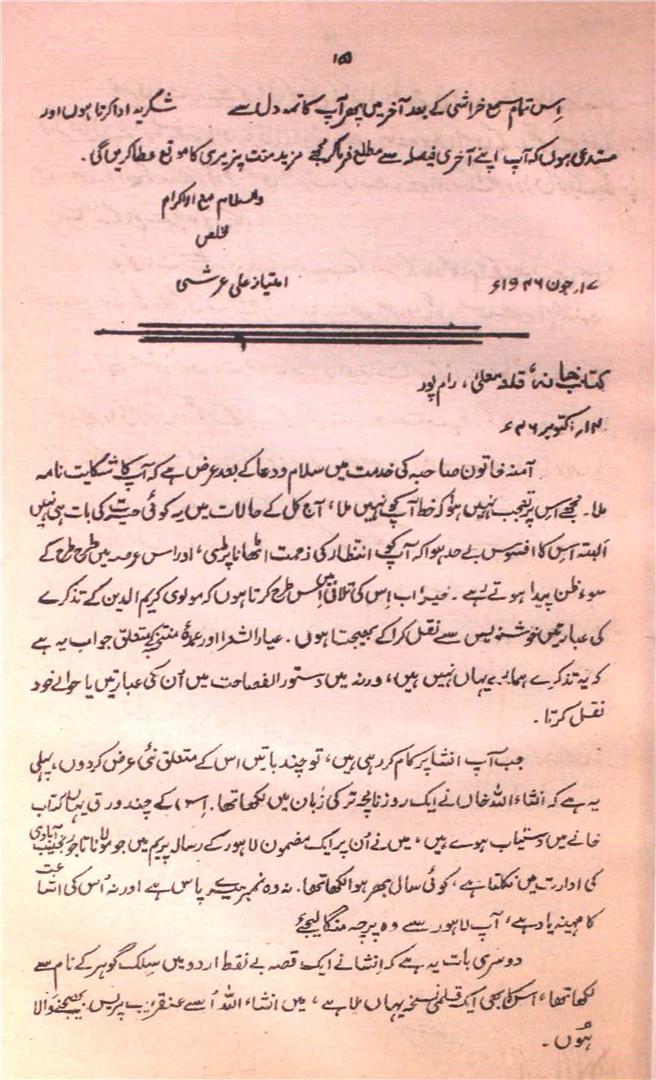 ۱۵
اِس تمام سمع خراشی کے بعد آخر میں پھر آپ کا تہہ دل سے شکریہ ادا کرتا ہوں اور
مستدعی ہوں کہ آپ اپنے آخری فیصلہ سے مطلع فرما کر مجھے مزید منت پذیری کا موقع عطا کریں گی۔
والسلام مع الاکرام
مخلص
۱۷؍جون ۱۹۴۶ء امتیاز علی عرشی
کتاب خانہ، قلعہ معلیٰ، رام پور
اکتوبر ۴۶ء
آمنہ خاتون صاحبہ کی خدمت میں سلام و دعا کے بعد عرض ہے کہ آپ کا شکایت نامہ
ملا۔ مجھے اس پر تعجب نہیں ہوا کہ خط آپ کو نہیں ملا، آج کل کے حالات میں یہ کوئی حیرت کی بات ہی نہیں
البتہ اس کا افسوس بے حد ہوا کہ آپ کو انتظار کی زحمت اٹھانا پڑی، اور اس عرصہ میں طرح طرح کے
سوء ظن پیدا ہوتے رہے۔ خیر اب اِس کی تلافی اس طرح کرتا ہوں کہ مولوی کریم الدین کے تذکرے
کی عبارتیں خوشنویس سے نقل کرا کے بھیجتا ہوں۔ عیار الشعرا اور عمدۂ منتخبہ کے متعلق جواب یہ ہے
کہ یہ تذکرے ہمارے یہاں نہیں ہیں، ورنہ میں دستور الفصاحت میں اُن کی عبارتیں یا حوالے خود
نقل کرتا۔
جب آپ انشا پر کام کر رہی ہیں، تو چند باتیں اس کے متعلق نئی عرض کر دوں، پہلی
یہ ہے کہ انشاء اللہ خاں نے ایک روزنامچہ ترکی زبان میں لکھا تھا۔ اِس کے چند ورق یہاں کتاب
خانے میں دستیاب ہوے ہیں، میں نے اُن پر ایک مضمون لاہور کے رسالہ پریم میں جو مولانا تاجور نجیب آبادی
کی ادارت میں نکلتا ہے، کوئی سال بھر ہوا لکھا تھا۔ نہ وہ نمبر میرے پاس ہے اور نہ اُس کی اشاعت
کا مہینہ یاد ہے، آپ لاہور سے وہ پرچہ منگا لیجئے
دوسری بات یہ ہے کہ انشا نے ایک قصہ بے نقط اردو میں سلک گوہر کے نام سے
لکھا تھا، اس کا بھی ایک قلمی نسخہ یہاں ملا ہے، میں انشاء اللہ اُسے عنقریب پریس بھیجنے والا
ہوں۔